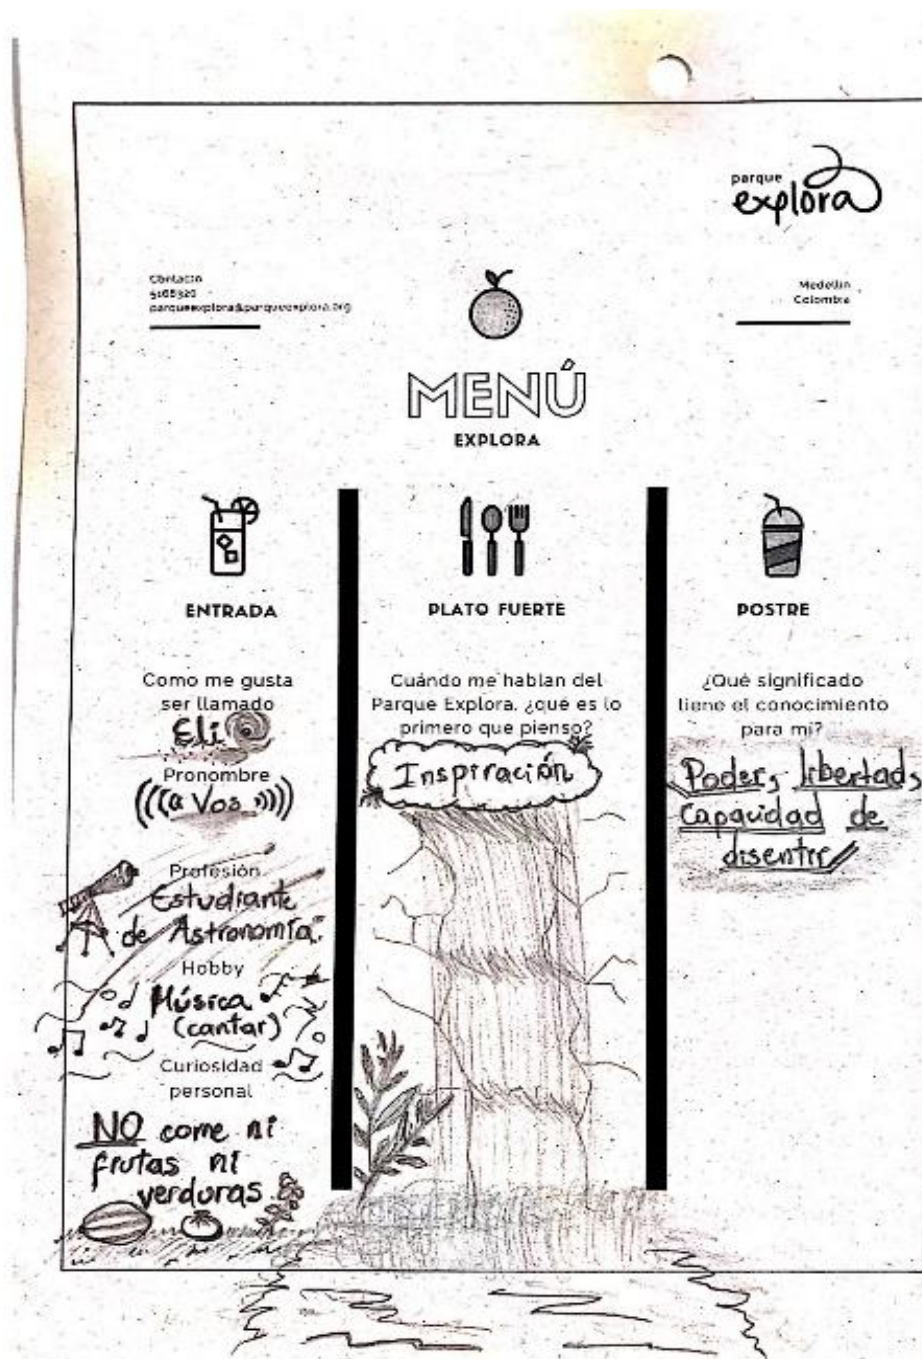 parque
explora
Contacto
5168320
parqueexplora@parqueexplora.org
Medellín
Colombia
MENÚ
EXPLORA
ENTRADA
Como me gusta
ser llamado
Eli
Pronombre
Vos
Profesión
Estudiante
de Astronomía.
Hobby
Música
(cantar)
Curiosidad
personal
NO come ni
frutas ni
verduras
PLATO FUERTE
Cuándo me hablan del
Parque Explora. ¿qué es lo
primero que pienso?
Inspiración
POSTRE
¿Qué significado
tiene el conocimiento
para mi?
Poder, libertad,
Capacidad de
disentir